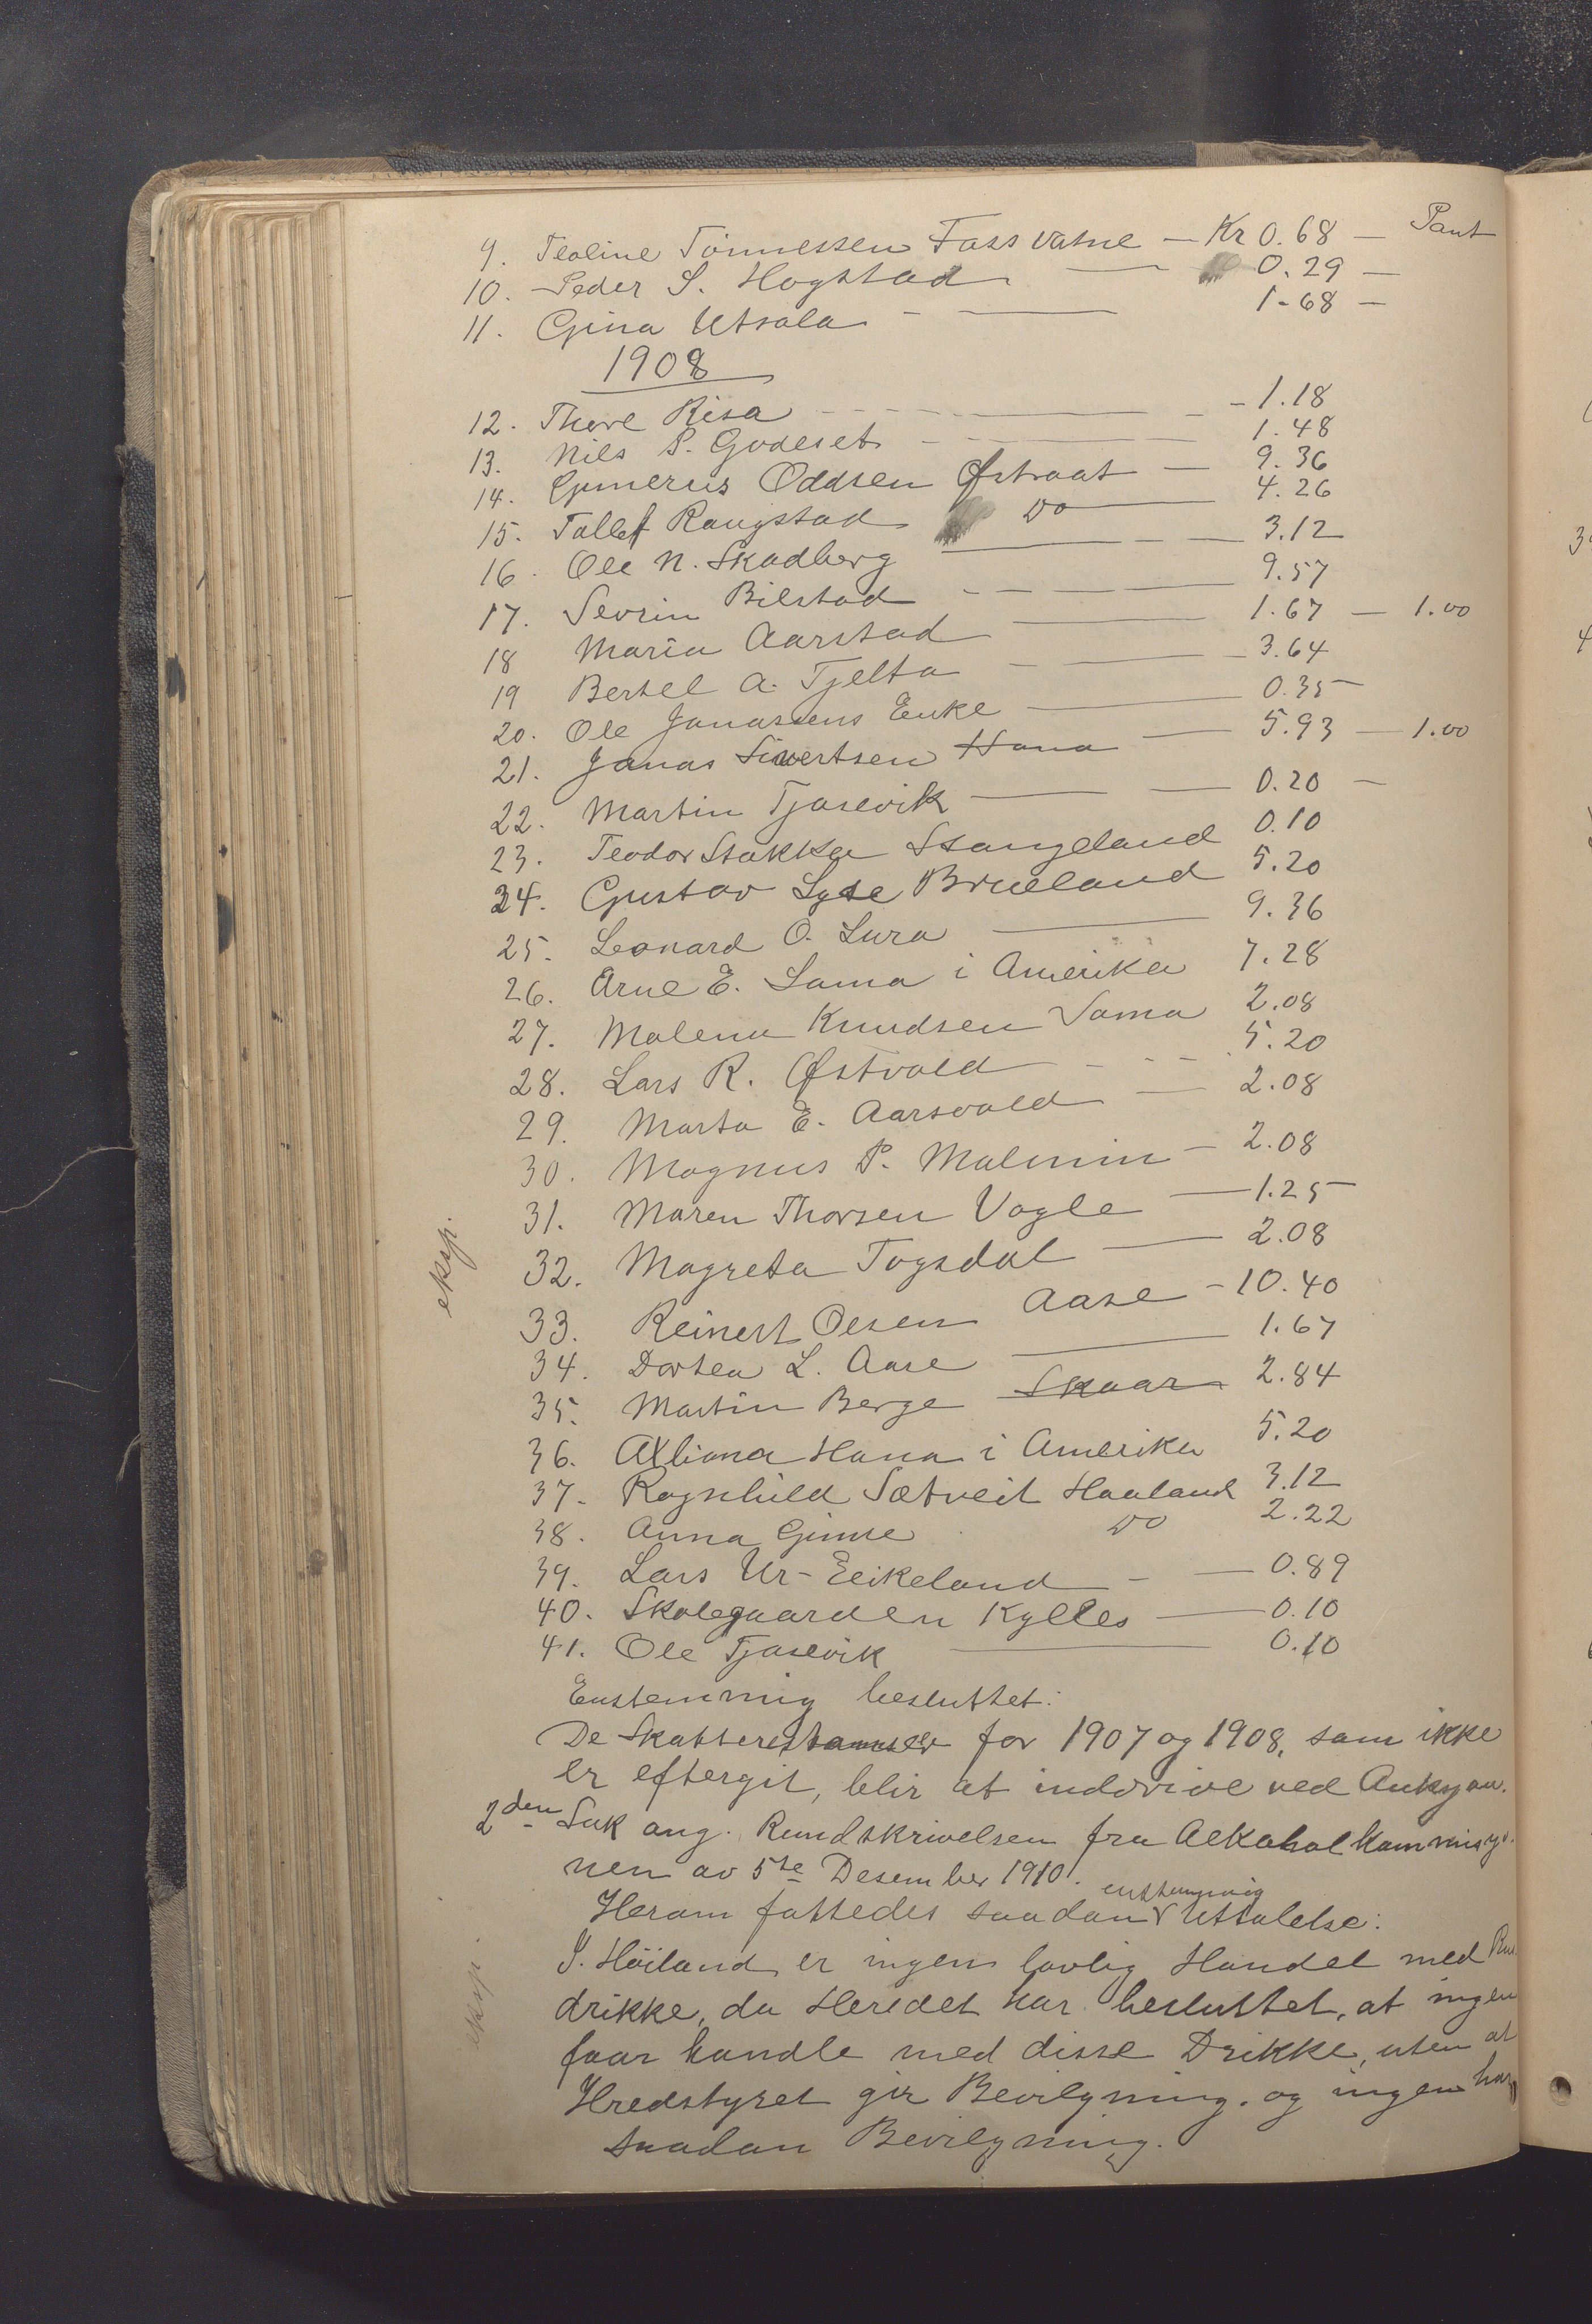 9. Teoline Tönnessen Fassvatne — Kr 0.68 — Pant
10. Peder S. Hogstad — 0.29 —
11. Gina Utsola — 1-68 —
1908
12. Thore Risa — 1.18
13. Nils P. Godeset — 1.48
14. Gunerius Oddsen Østraat — 9.36
15. Tallef Raugstad Do — 4.26
16. Ole N. Skadberg — 3.12
17. Sevrin Bilstad — 9.57
18 Maria Aarstad — 1.67 — 1.00
19 Bertel A. Tjelta — 3.64
20. Ole Janassens Enke — 0.35
21. Janas Sivertsen Hana — 5.93 — 1.00
22. Martin Tjasevik — 0.20 —
23. Teodor Stakka Stangeland 0.10
24. Gustav Lyse Brueland 5.20
25. Leonard O. Lura — 9.36
26. Arne E. Lama i Amerika 7.28
27. Malena Knudsen Soma 2.08
28. Lars R. Østvold — 5.20
29. Marta E. Aarsvold — 2.08
30. Magnus P. Malmin — 2.08
31. Maren Thorsen Vagle — 1.25
32. Magreta Fogsdal — 2.08
eksp.
33. Reinert Olsen Aase — 10.40
34. Dortea L. Aase — 1.67
35. Martin Berge Skaar 2.84
36. Albiana Hana i Amerika 5.20
37. Ragnhild Sætveit Haaland 3.12
38. Anna Gimre Do 2.22
39. Lars Ur-Eeikeland — 0.89
40. Skolegaarden Kylles — 0.10
41. Ole Tjasevik — 0.10
Enstemmig besluttet:
De Skatterestanser for 1907 og 1908, som ikke
er eftergit, blir at inddrive ved Auksjon.
2den Sak ang. Rundskrivelsen fra Alkoholkommisjo-
nen av 5te Desember 1910.
Herom fattedes saadan enstemmig Uttalelse:
I Höiland er ingen lovlig Handel med Rus
eksp.
drikke, da Heredet har besluttet, at ingen
faar handle med disse Drikke, uten at
Hredstyret gir Bevilgning. og ingen har
saadan Bevilgning.